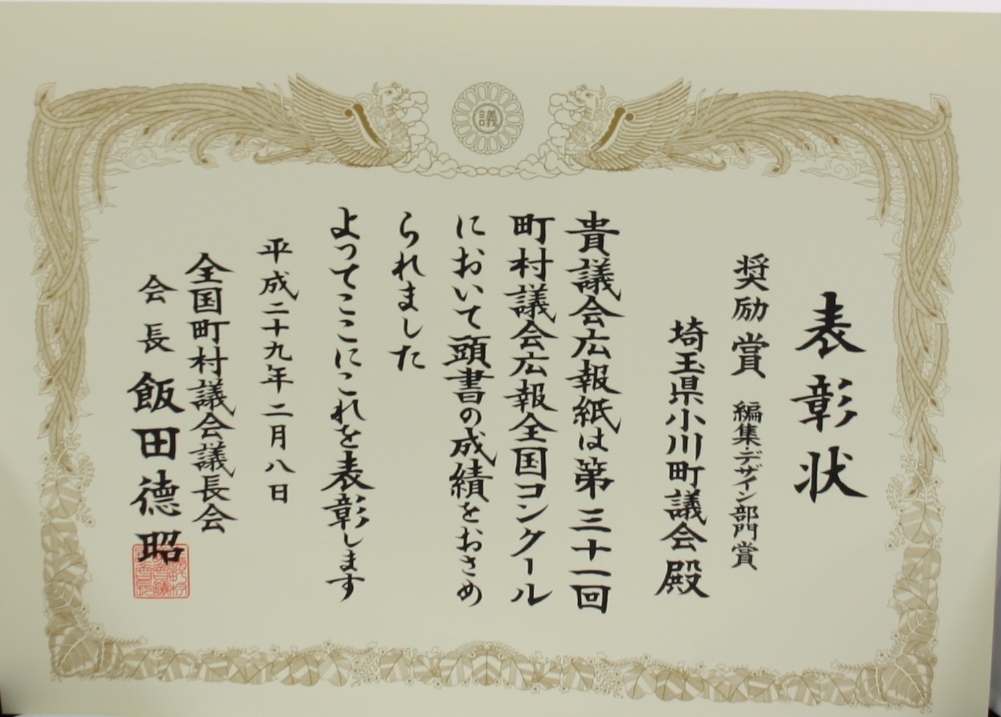 議
表彰状
奨励賞 編集・デザイン部門賞
埼玉県小川町議会殿
貴議会広報紙は第三十一回
町村議会広報全国コンクール
において頭書の成績をおさめ
られました
よってここにこれを表彰します
平成二十九年二月八日
全国町村議会議長会
会長 飯田徳昭